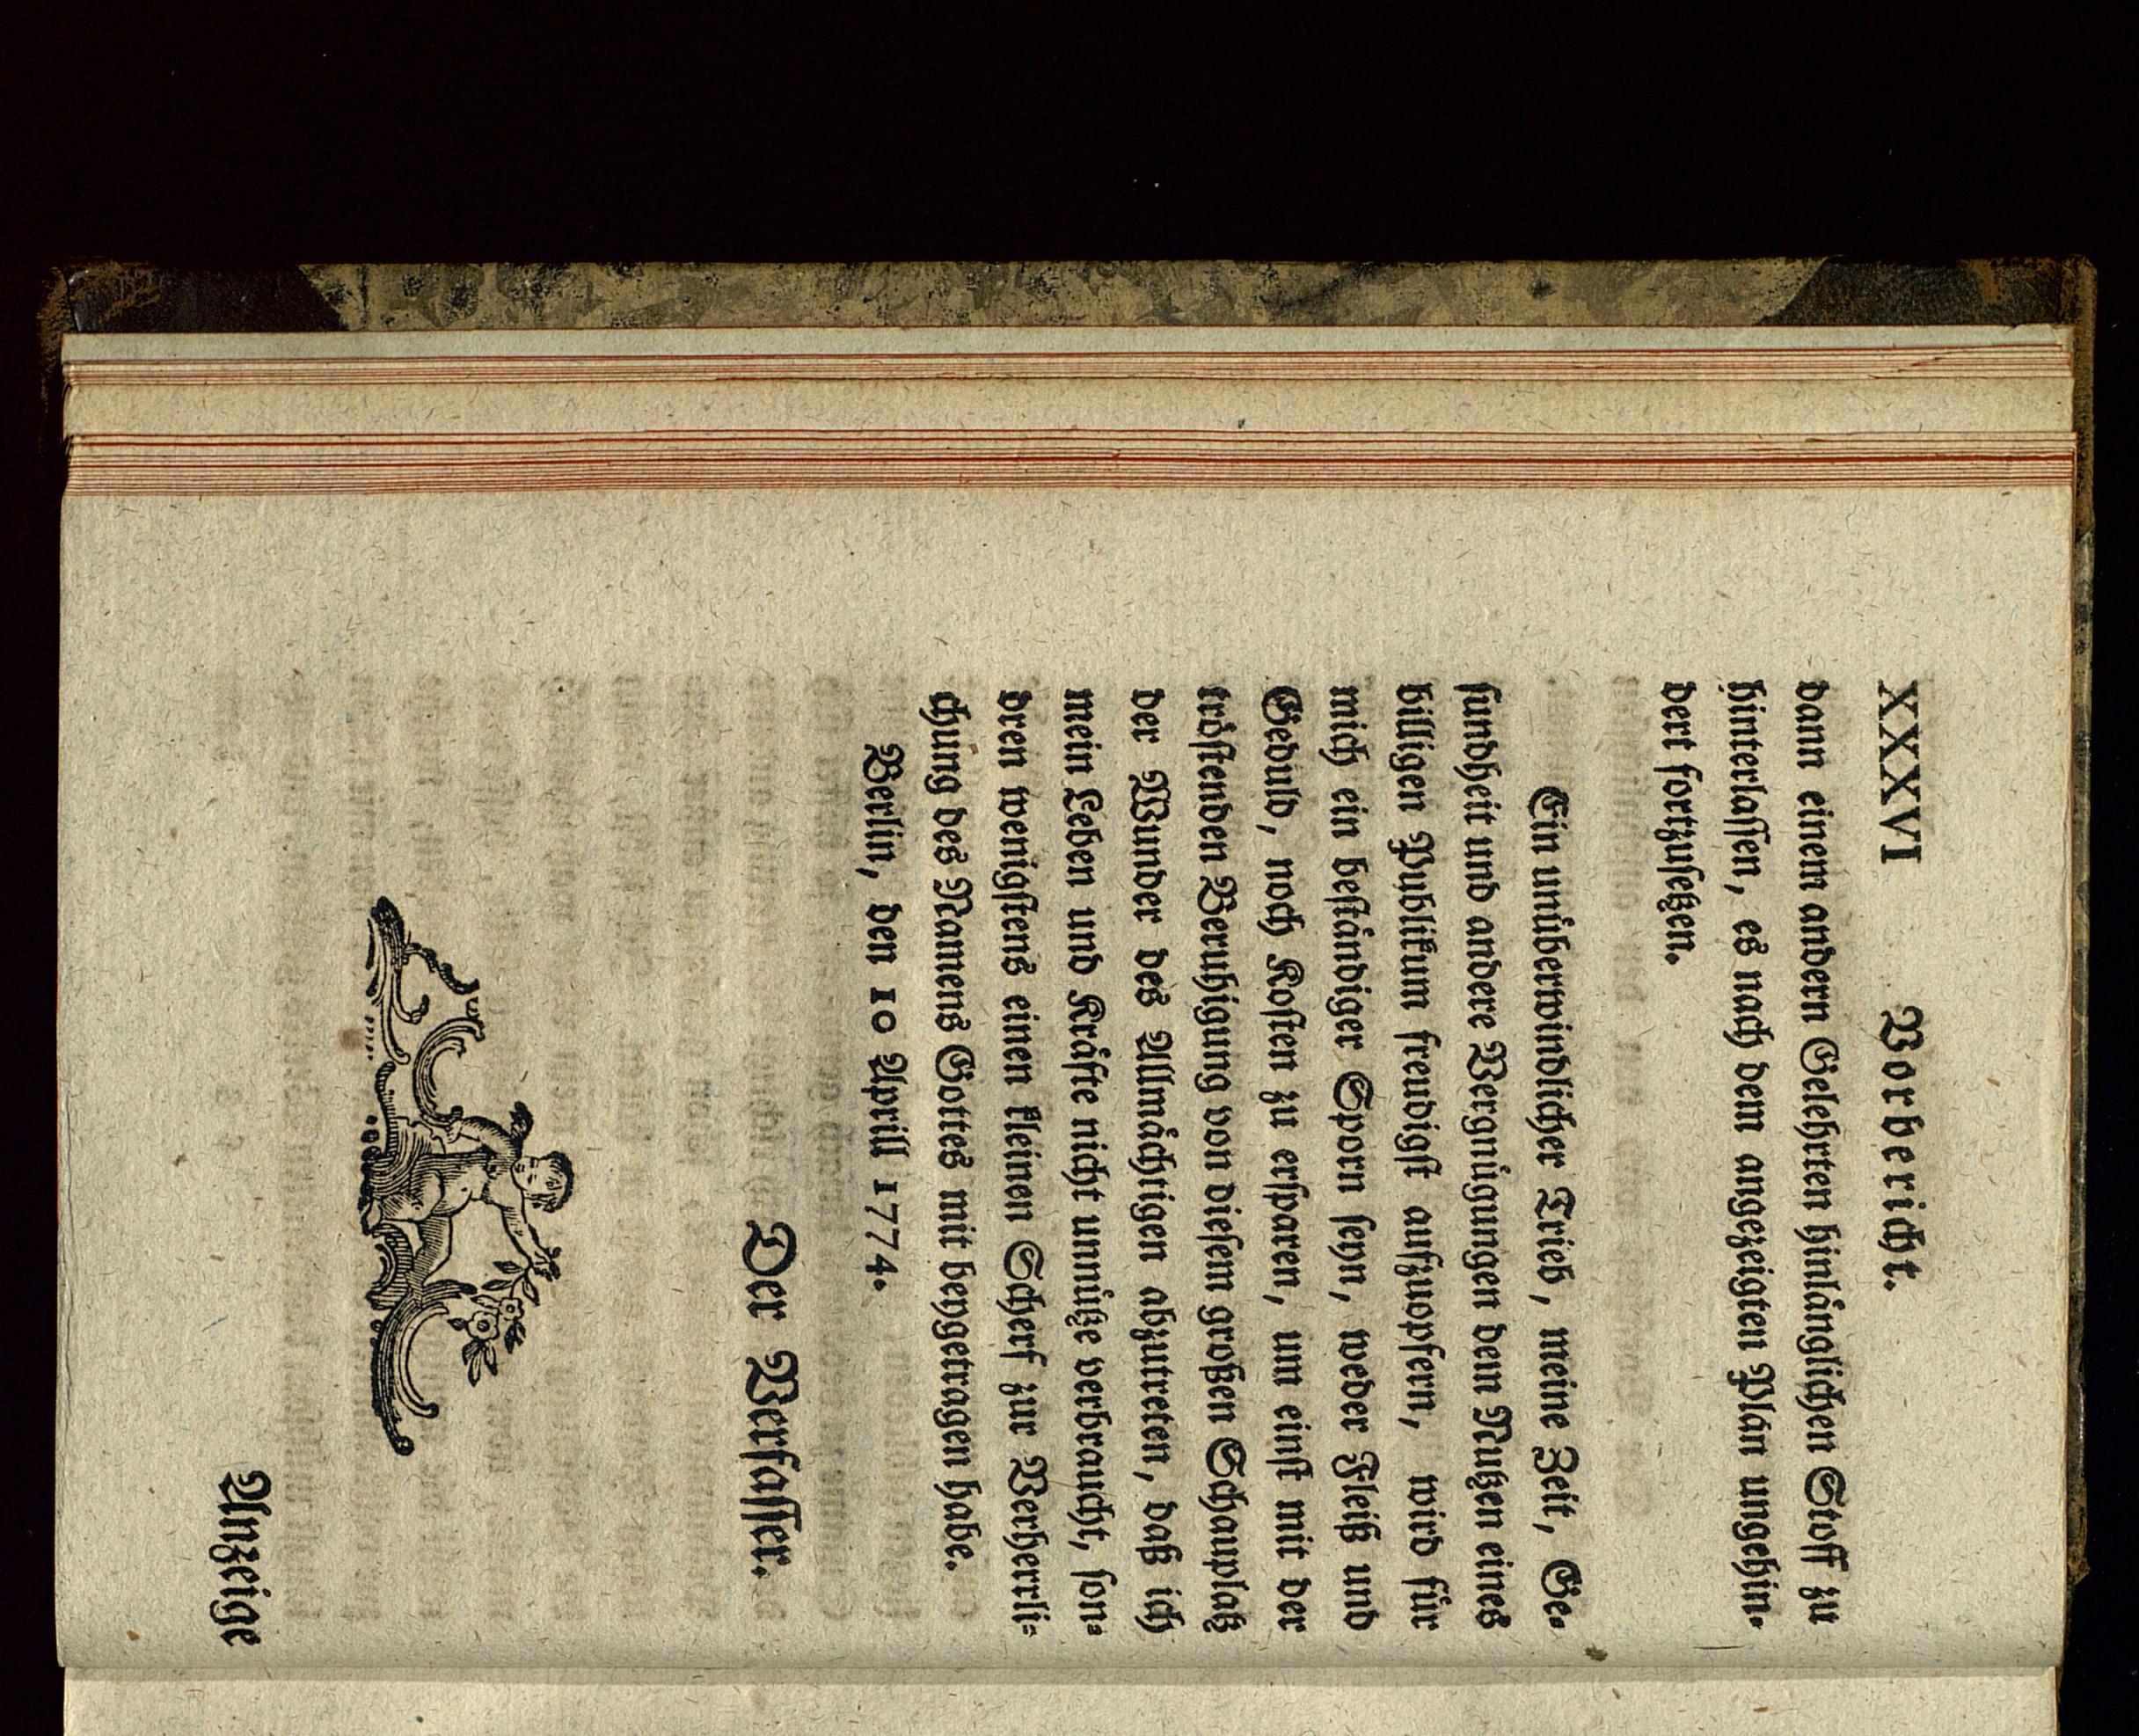 XXXVI Vorbericht.
dann einem andern Gelehrten hinlänglichen Stoff zu
hinterlaſſen, es nach dem angezeigten Plan ungehin-
dert fortzuſetzen.
Ein unüberwindlicher Trieb, meine Zeit, Ge-
ſundheit und andere Vergnügungen dem Nutzen eines
billigen Publikum freudigſt aufzuopfern, wird für
mich ein beſtändiger Sporn ſeyn, weder Fleiß und
Geduld, noch Koſten zu erſparen, um einſt mit der
tröſtenden Beruhigung von dieſem großen Schauplatz
der Wunder des Allmächtigen abzutreten, daß ich
mein Leben und Kräfte nicht unnütze verbraucht, ſon-
dren wenigſtens einen kleinen Scherf zur Verherrli-
chung des Namens Gottes mit beygetragen habe.
Berlin, den 10 Aprill 1774.
Der Verfaſſer.
Anzeige